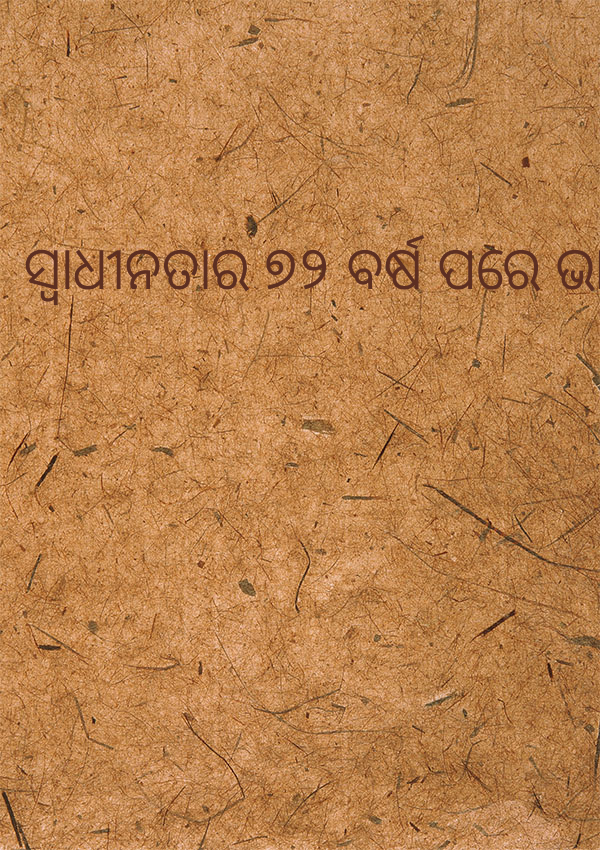 ସ୍ୱାଧୀନତାର ୭୨ ବର୍ଷ ପରୈ